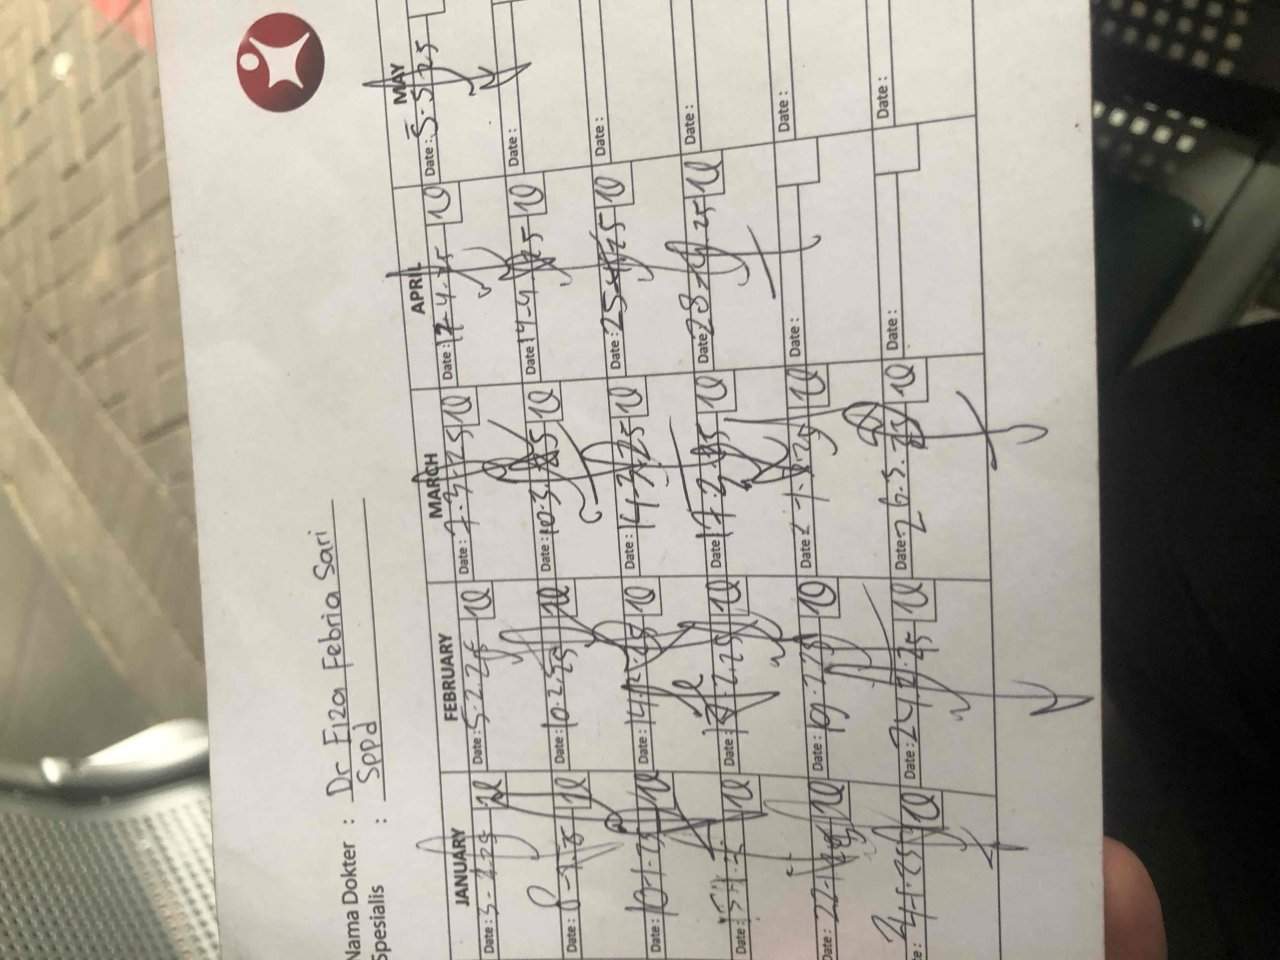 Nama Dokter : Dr Fiza Febria Sari
Spesialis : Sppd
JANUARY FEBRUARY MARCH APRIL MAY
Date : Date : 5.2.25 10 Date : 7.3.25 10 Date : 10 Date : 5.5.25
Date : 10 Date : 10.2.25 10 Date : 10.3.25 10 Date : 14-4-25 10 Date :
Date : 10-1-25 10 Date : 14.2.25 10 Date : 14-3-25 10 Date : 25-4-25 10 Date :
Date : 10 Date : 2.25 10 Date : 17.3.25 10 Date : 28-4-25 10 Date :
Date : 22-1-25 10 Date : 19.2.25 10 Date : 10 Date : Date :
Date : 10 Date : 24.2.25 10 Date : 26.3.25 10 Date : Date :